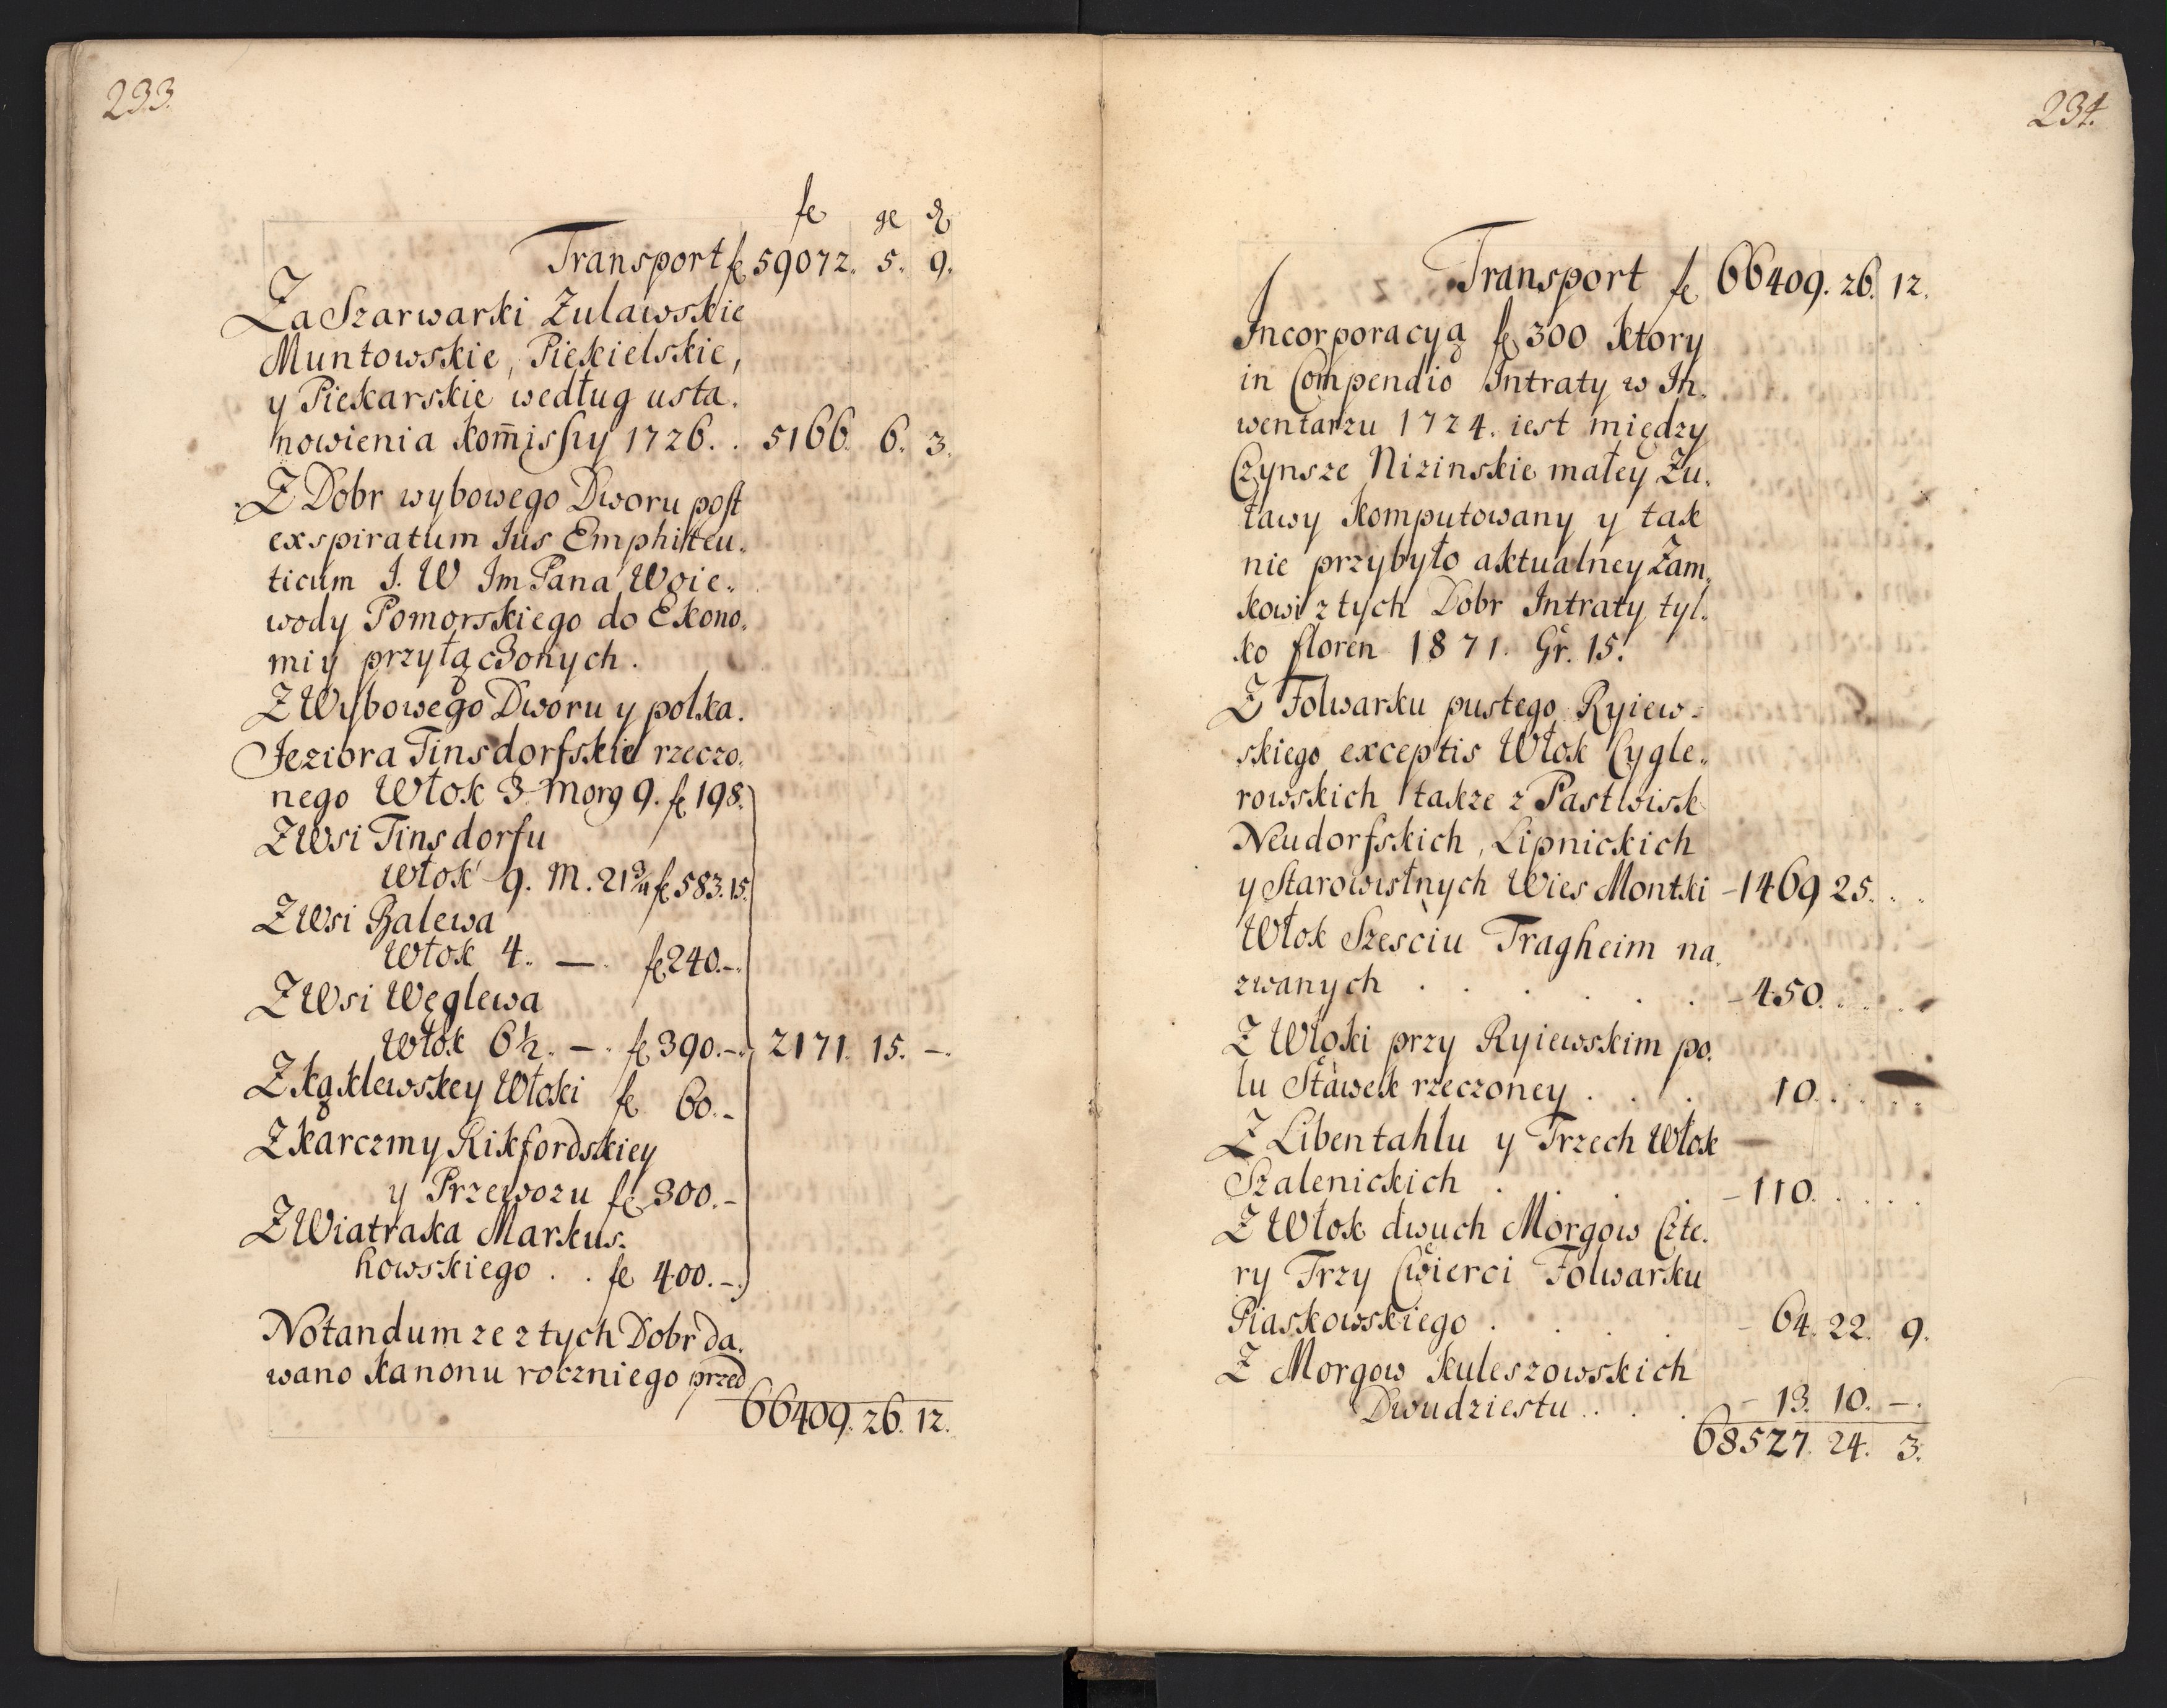 233.
fl gl d
Transport fl 59072. 5. 9.
Za Szarwarki Zulawskie
Muntowskie, Piekielskie,
y Piekarskie według usta.
nowienia Kom̄issyy 1726. . 5166. 6. 3.
Z Dobr wybowego Dworu post
exspiratum Ius Emphiteu.
ticum J. W Im Pana Woie.
wody Pomorskiego do Ekono.
miy przyłączonych.
Z Wybowego Dworu y polka.
Jeziora Tinsdorfskie rzeczo.
nego Włok 3 Morg 9. fl 198.
Z Wsi Tinsdorfu
Włok 9. M. 21 3/4 fl 583. 15.
Z Wsi Balewa
Włok 4. — fl 240.-.
Z Wsi Węglewa
Włok 6½. —. fl 390.-. 2171. 15. -.
Z Kąklewskey Włoki fl 60.-
Z Karczmy Rikfordskiey
y Przewozu fl 300.-
Z Wiatraka Markus.
howskiego . . fl 400.-.
Notandum ze z tych Dobr da.
wano Kanonu roczniego przed
66409. 26. 12.
234.
Transport fl 66409. 26. 12.
Incorporacyą fl 300 Ktory
in Compendio Intraty w In.
wentarzu 1724. iest między
Czynsze Nizinskie małey Zu.
ławy Komputowany y tak
nie przybyło aktualney Zam.
kowi z tych Dobr Intraty tyl.
ko floren 1871. Gr. 15.
Z Folwarku pustego Ryiew.
skiego exceptis Włok Cygle.
rowskich takze z Pastwisk
Neudorfskich, Lipnickich
y Starowislnych Wies Montki - 1469 25. . .
Włok Szesciu Tragheim na.
zwanych . . . . . . - 450. . . .
Z Włoki przy Ryiewskim po.
lu Stawek rzeczoney . . . 10. . . .
Z Libentahlu y Trzech Włok
Szalenickich . . . . - 110. . . .
Z Włok dwuch Morgow Czte.
ry Trzy Cwierci Folwarku
Piaskowskiego . . . . - 64. 22. 9.
Z Morgow Kuleszowskich
Dwudziestu . . . - 13. 10. -.
68527. 24. 3.